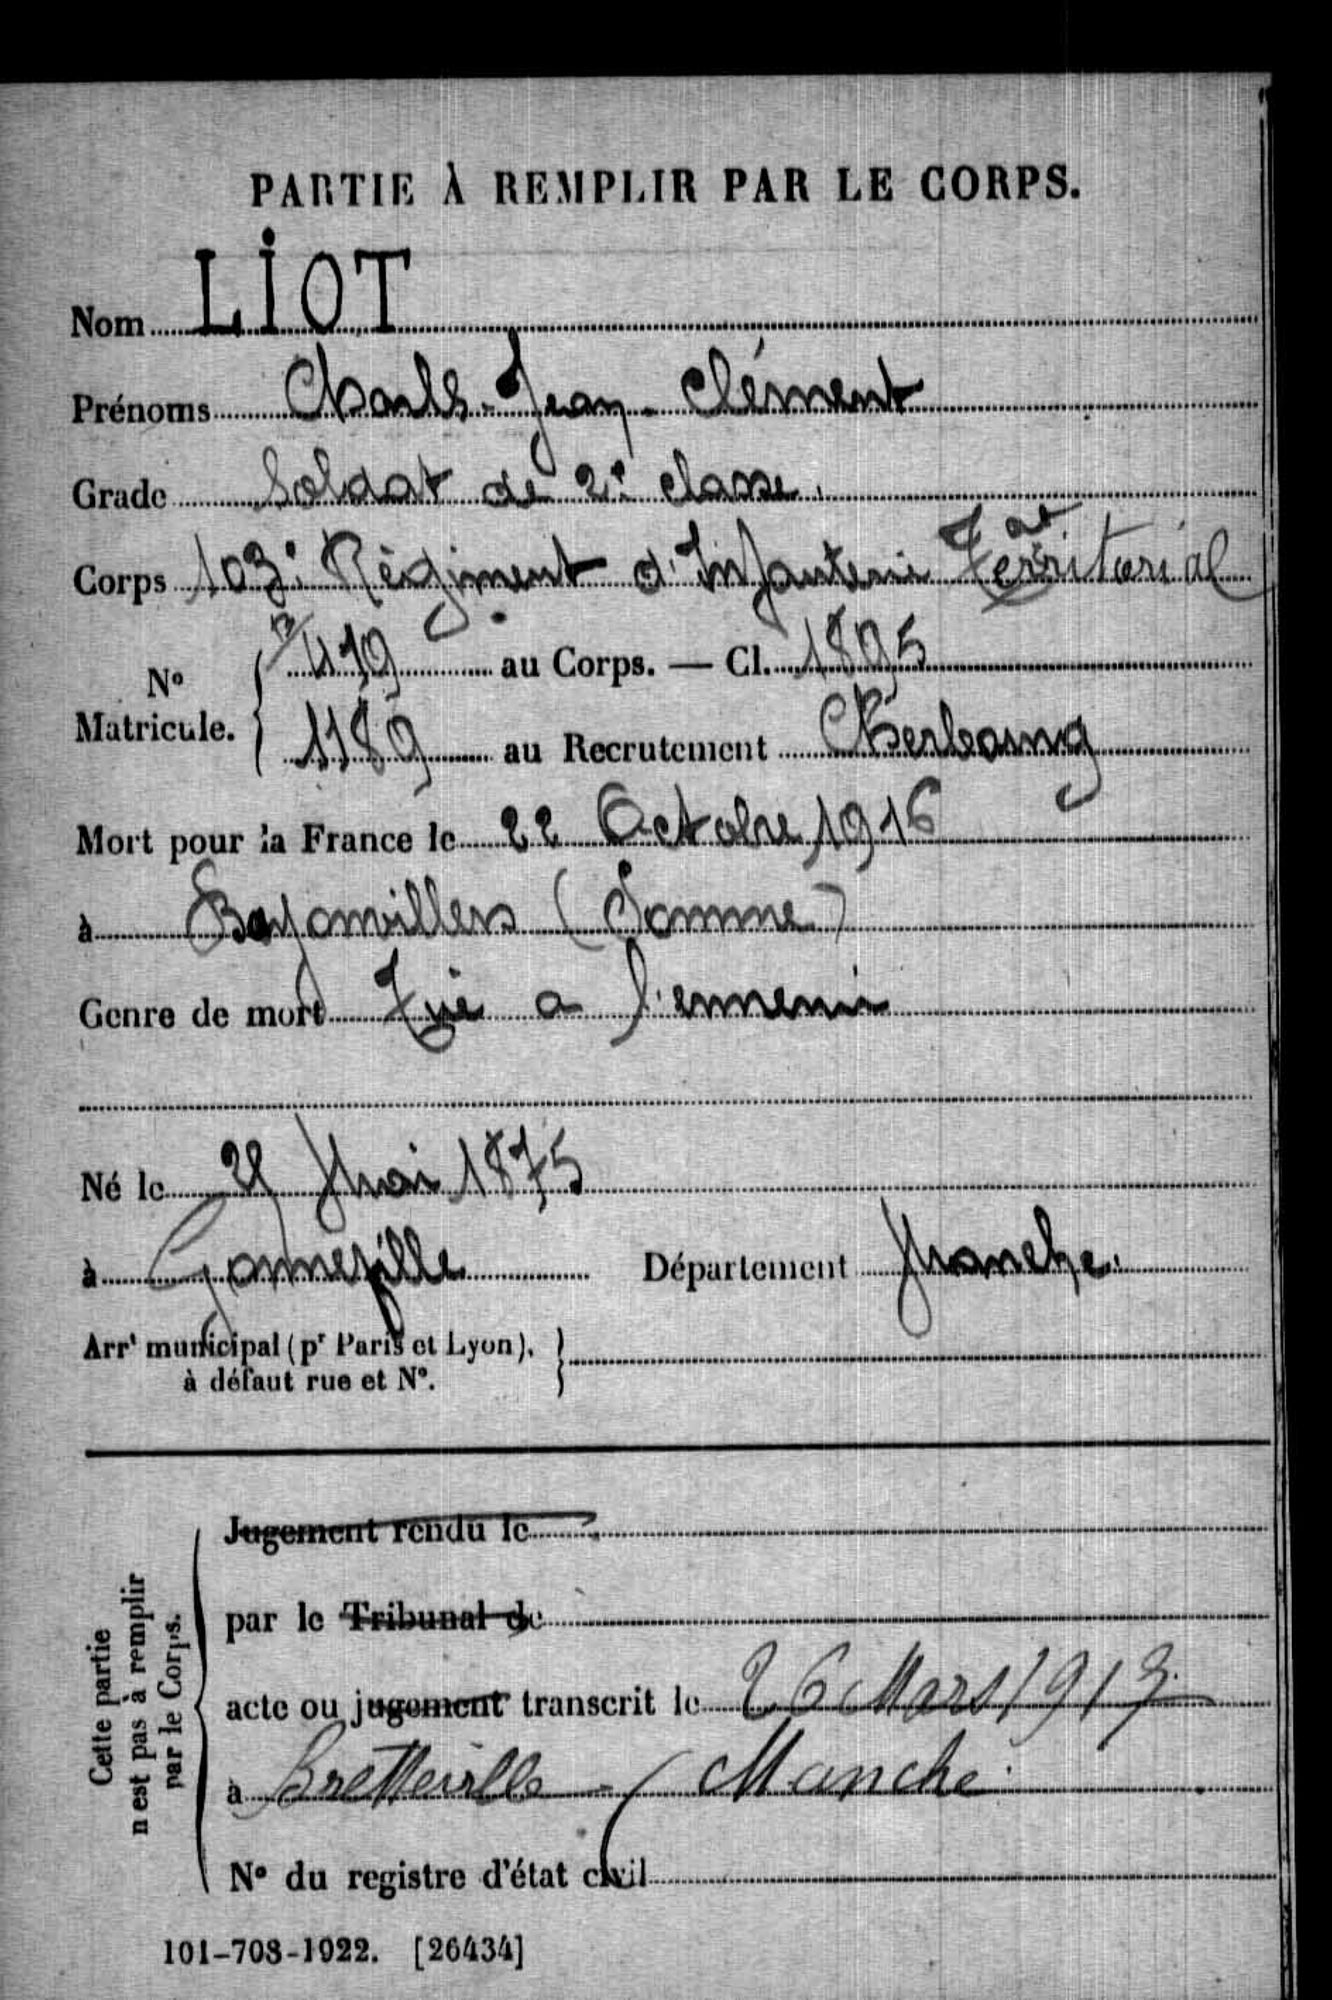 PARTIE À REMPLIR PAR LE CORPS.
Nom LIOT
Prénoms Charles-Jean-Clément
Grade Soldat de 2e classe.
Corps 103e Régiment d'Infanterie Territorial
N° Matricule. 419 au Corps. — Cl. 1895
1189 au Recrutement Cherbourg
Mort pour la France le 22 Octobre 1916
à Bayonvillers (Somme)
Genre de mort Tué a l'ennemi
Né le Mai 1875
à Gonneville Département Manche.
Arrt municipal (pr Paris et Lyon),
à défaut rue et N°.
Cette partie
n'est pas à remplir
par le Corps.
Jugement rendu le
par le Tribunal de
acte ou jugement transcrit le 26 Mars 1917
à Bretteville (Manche
N° du registre d'état civil
101-708-1922. [26434]